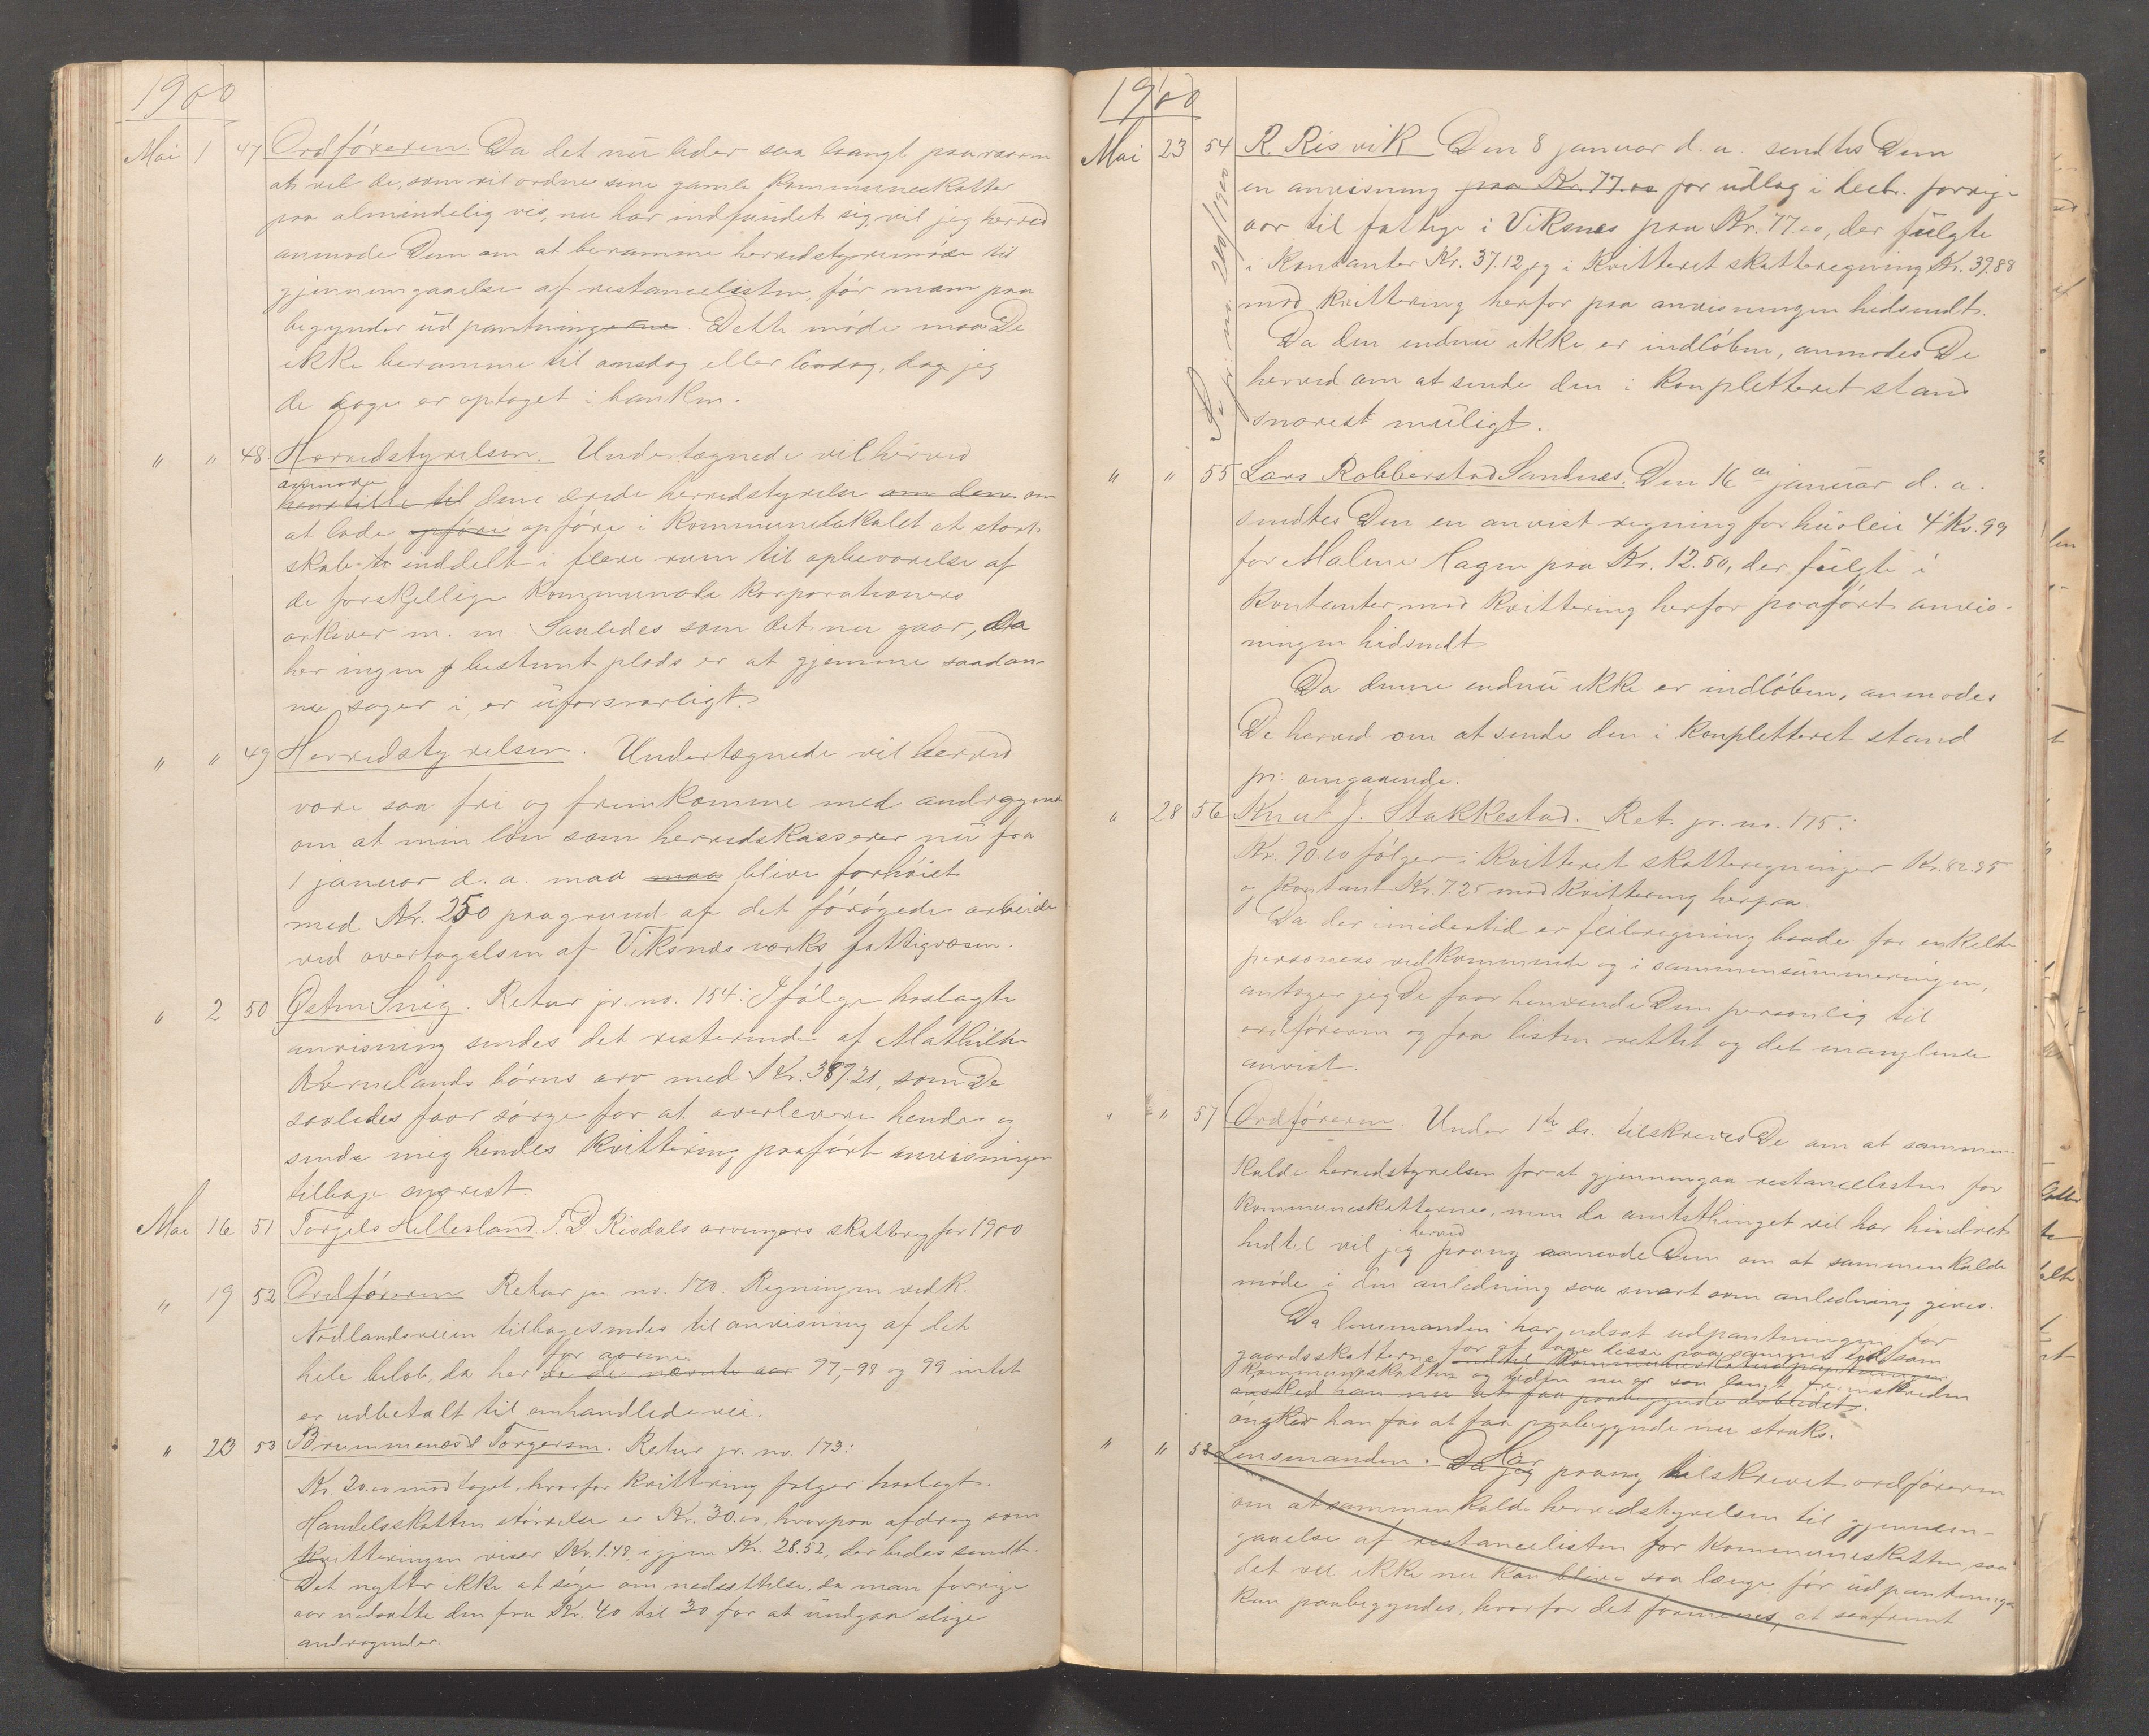 1900
Mai 1 47 Ordföreren. Da det nu lider saa langt paa vaaren
at vel de, som vil ordne sine gamle kommuneskatter
paa almindelig vis, nu har indfundet sig, vil jeg herved
anmode Dem om at beramme herredstyremöde til
gjennemgaaelse af restancelisten, för man paa
begynder udpantningerne. Dette möde maa De
ikke beramme til onsdag eller lördag, da jeg
de dage er optaget i banken.
" " 48 Herredstyrelsen. Undertegnede vil herved
anmode
henstille til den ærede herredstyrelse om den om
at lade opföre opföre i kommunelokalet et stort
skab inddelt i flere rum til opbevarelse af
de forskjellige kommunale korporationers
arkiver m. m. Saaledes som det nu gaar, da
her ingen bestemt plads er at gjemme saadan-
ne sager i, er uforsvarligt.
" " 49 Herredstyrelsen. Undertegnede vil herved
være saa fri og fremkomme med andragende
om at min lön som herredskasserer nu fra
1 januar d. a. maa maa blive forhöiet
med Kr. 250 paagrund af det forögede arbeide
ved overtagelsen af Viksnes værks fattigvæsen.
" 2 50 Østen Snig. Retur jr. no. 154: Ifölge hoslagte
anvisning sendes det resterende af Mathilde
Kvernelands börns arv med Kr. 389.21, som De
saaledes faar sörge for at overlevere hende og
sende mig hendes kvittering paafört anvisningen
tilbage snarest.
Mai 16 51 Torgels Hellesland. T. D. Risdals arvingers skattereg for 1900
" 19 52 Ordföreren Retur jr. no. 170. Regningen vedk.
Nordlandsveien tilbagesendes til anvisning af det
for aarene
hele belöb, da her de nævnte aar 97,-98 og 99 intet
er udbetalt til omhandlede vei.
" 23 53 Brummenæs & Torgersen. Retur jr. no. 173:
Kr. 20.00 modtaget, hvorfor kvittering fölger hoslagt.
Handelsskatten störrelse er Kr. 30.00, hvorpaa afdrag som
kvitteringen viser Kr. 1.48, igjen Kr. 28.52, der bedes sendt.
Det nytter ikke at söge om nedsættelse, da man forrige
aar nedsatte den fra Kr. 40 til 30 for at undgaa slige
andragender.
1900
Mai 23 54 R. Risvik Den 8 januar d. a. sendtes Dem
en anvisning paa Kr. 77.00 for udlæg i decbr. forrige
aar til fattige i Viksnes paa Kr. 77.00, der fulgte
i kontanter Kr. 37.12 og i kvitteret skatteregning Kr. 39.88
mod kvittering herfor paa anvisningen hidsendt.
Da den endnu ikke er indlöben, anmodes De
herved om at sende den i kompletteret stand
snarest muligt.
" " 55 Lars Rabberstad Sandnes. Den 16 de januar d. a.
sendtes Dem en anvist regning for husleie 4 Kv. 99
for Malene Hagen paa Kr. 12.50, der fulgte i
kontanter mod kvittering herfor paafört anvis-
ningen hidsendt
Da denne endnu ikke er indlöben, anmodes
De herved om at sende den i kompletteret stand
pr. omgaaende.
" 28 56 Knut J. Stakkestad. Ret. jr. no. 175:
Kr. 90.10 fölger i kvitteret skatteregninger Kr. 82.85
og kontant Kr. 7.25 mod kvittering herpaa
Da der imidertid er feilregning baade for enkelte
personers vedkommende og i sammensummeringen,
antager jeg De faar henvende Dem personlig til
ordföreren og faa listen rettet og det manglende
anvist.
" " 57 Ordföreren. Under 1ste ds. tilskreves De om at sammen-
kalde herredstyrelsen for at gjennemgaa restancelisten for
kommuneskatterne, men da amtsthinget vel har hindret
herved
hidtil vil jeg paany anmode Dem om at sammenkalde
möde i den anledning saa snart som anledning gives.
Da lensmanden har udsat udpantningen for
gaardsskatterne for at tage disse paa samme tid som
kommuneskatten og tiden nu er saa langt fremskriden
önsked han nu at faa paabegynde arbeidet.
önsker han faa at faa paabegynde nu straks.
" " 58 Lensmanden. Da jeg Har paany tilskrevet ordföreren
om at sammenkalde herredstyrelsen til gjennem-
gaaelse af restancelisten for kommuneskatten saa
det vel ikke nu kan blive saa længe för udpantninger
kan paabegyndes, hvorfor det formenes, at saafremt